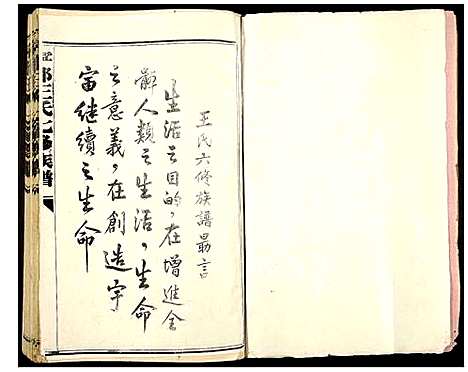 王氏六修族譜勗言
生活之目的，在增進全
體人類之生活，生命
之意義，在創造宇
宙繼續之生命
王氏七修族譜